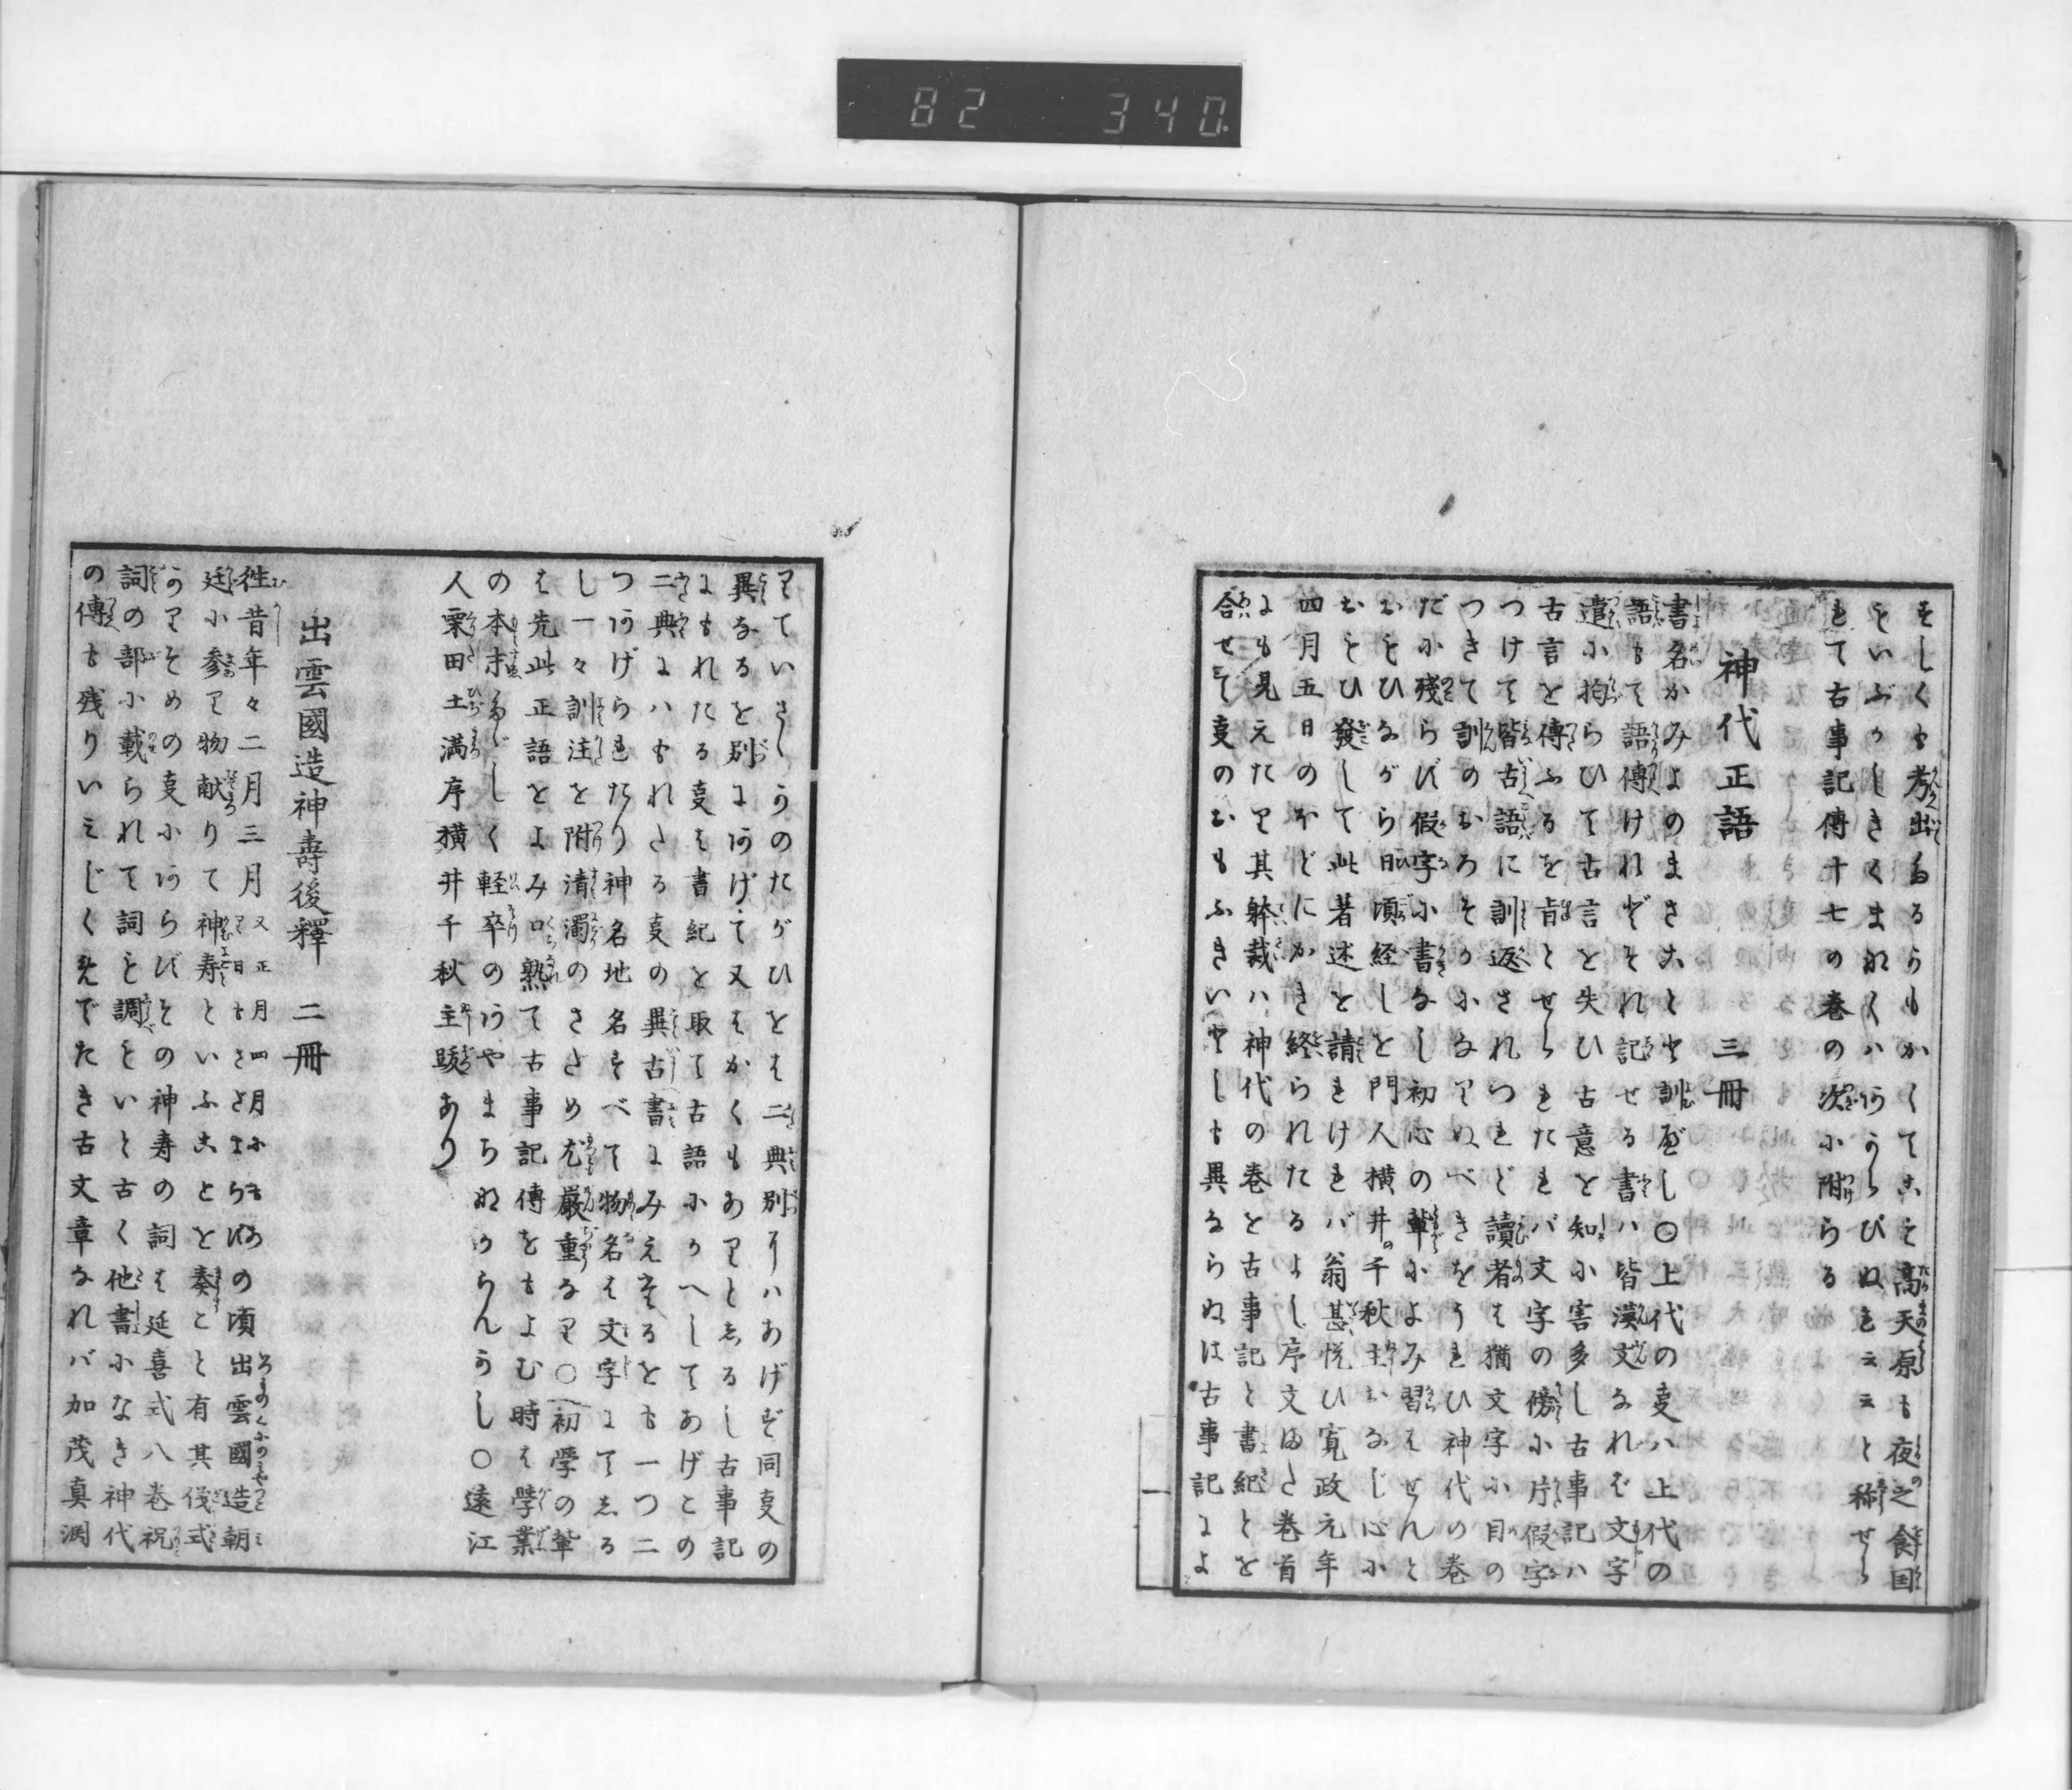 82 340
をしくも考出たるらもかくてこそ高天原も夜之食国
といぶかしきくまなくハありうらびぬもと云云と称せら
もて古事記傳十七の巻の次に附らる
神代正語 三冊
書名かみよのまさことと訓べし〇上代の叓ハ上代の
語もて語傳けれどそれ記せる書ハ皆漢文なれば文字
遣に拘らひて古言を失ひ古意を知に害多し古事記ハ
古言を傳ふるを旨とせられたれバ文字の傍に片假字
つけて皆古語に訓返されつれど讀者は猶文字に目の
つきて訓のおろそかになりぬべきをうれひ神代の巻
だに残らず假字に書なし初心の輩によみ習はせんと
おもひながら日頃経しを門人横井の千秋主おなじ心に
おもひ發して此著述を請れけれバ翁甚悦ひ寛政元年
四月五日のほどにかき終られたるよし序文また巻首
にも見えたり其躰裁ハ神代の巻を古事記と書紀とを
合せて叓のおもふきいさゝしも異ならぬは古事記によ
りていさゝかのたがひをば二典別々ハあげず同叓の
異なるを別にあげて又はかくもありとしるし古事記
にもれたる叓は書紀を取て古語にかへしてあげこの
二典にハもれたる叓の異古書にみえたるをも一つ二
つあげられたり神名地名すべて物名は文字にてしる
し一々訓注を附清濁のさだめ尤厳重なり〇初學の輩
は先此正語をよみ口熟て古事記傳をもよむ時は學業
の本末たゞしく軽卒のあやまちなからんかし〇遠江
人栗田土満序横井千秋主跋あり
出雲國造神壽後釋 二冊
徃昔年々二月三月又正月四月にもありの頃出雲國造朝
廷に参り物献りて神寿といふことを奏こと有其儀式
のりそめの叓にならびその神寿の詞は延喜式八巻祝
詞の部に載られて詞を調といと古く他書になき神代
の傳も残りいみじくめでたき古文章なれバ加茂真渕